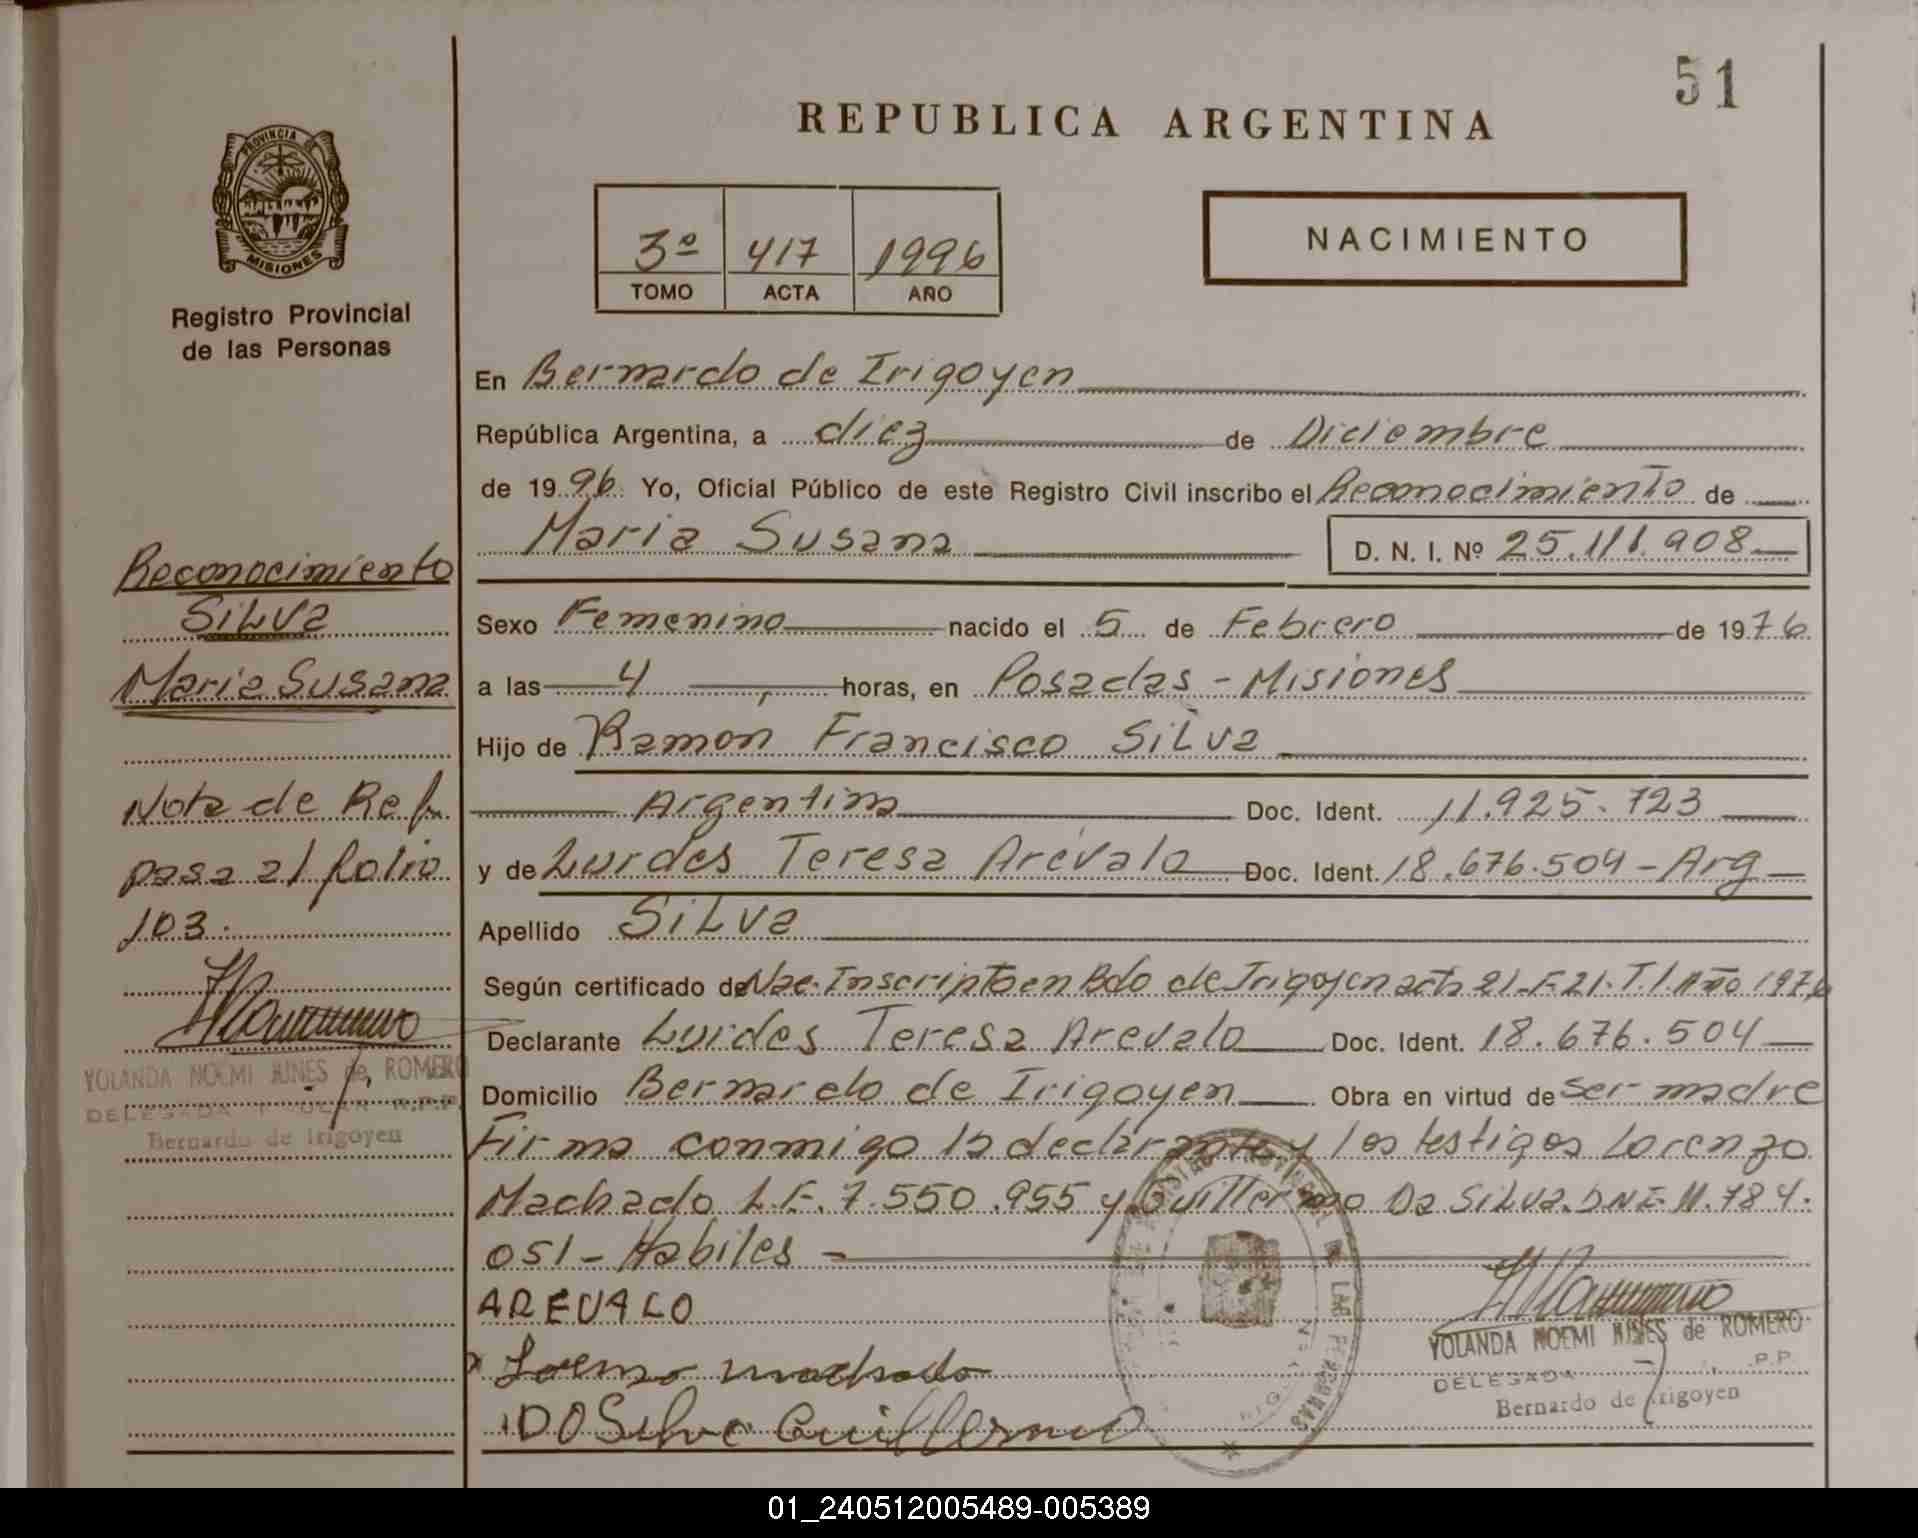 51
REPUBLICA ARGENTINA
PROVINCIA DE
MISIONES
Registro Provincial
de las Personas
3º 417 1996
TOMO ACTA AÑO
NACIMIENTO
En Bernardo de Irigoyen
República Argentina, a diez de Diciembre
de 1996 Yo, Oficial Público de este Registro Civil inscribo el Reconocimiento de
Maria Susana D. N. I. Nº 25.111.908
Sexo Femenino nacido el 5 de Febrero de 1976
a las 4 horas, en Posadas - Misiones
Hijo de Ramón Francisco Silva
Argentina Doc. Ident. 11.925.723
y de Lurdes Teresa Arévalo Doc. Ident. 18.676.504 - Arg
Apellido Silva
Según certificado de Nac. Inscripto en Bdo de Irigoyen acta 21-F21-T.1 Año 1976
Declarante Lurdes Teresa Arevalo Doc. Ident. 18.676.504
Domicilio Bernardo de Irigoyen Obra en virtud de ser madre
Firma conmigo la declarante y los testigos Lorenzo
Machado L.E. 7.550.955 y Guillermo Da Silva. DNI. 11.784.
051 - Habiles -
AREVALO
machado
DO Silva Guillermo
YOLANDA NOEMI de ROMERO
DELEGADA P.P.
Bernardo de Irigoyen
Reconocimiento
Silva
Maria Susana
Nota de Ref.
pasa al folio
103.
YOLANDA NOEMI de ROMERO
DELEGADA R.P.P.
Bernardo de Irigoyen
DE LAS PERSONAS
01_240512005489-005389